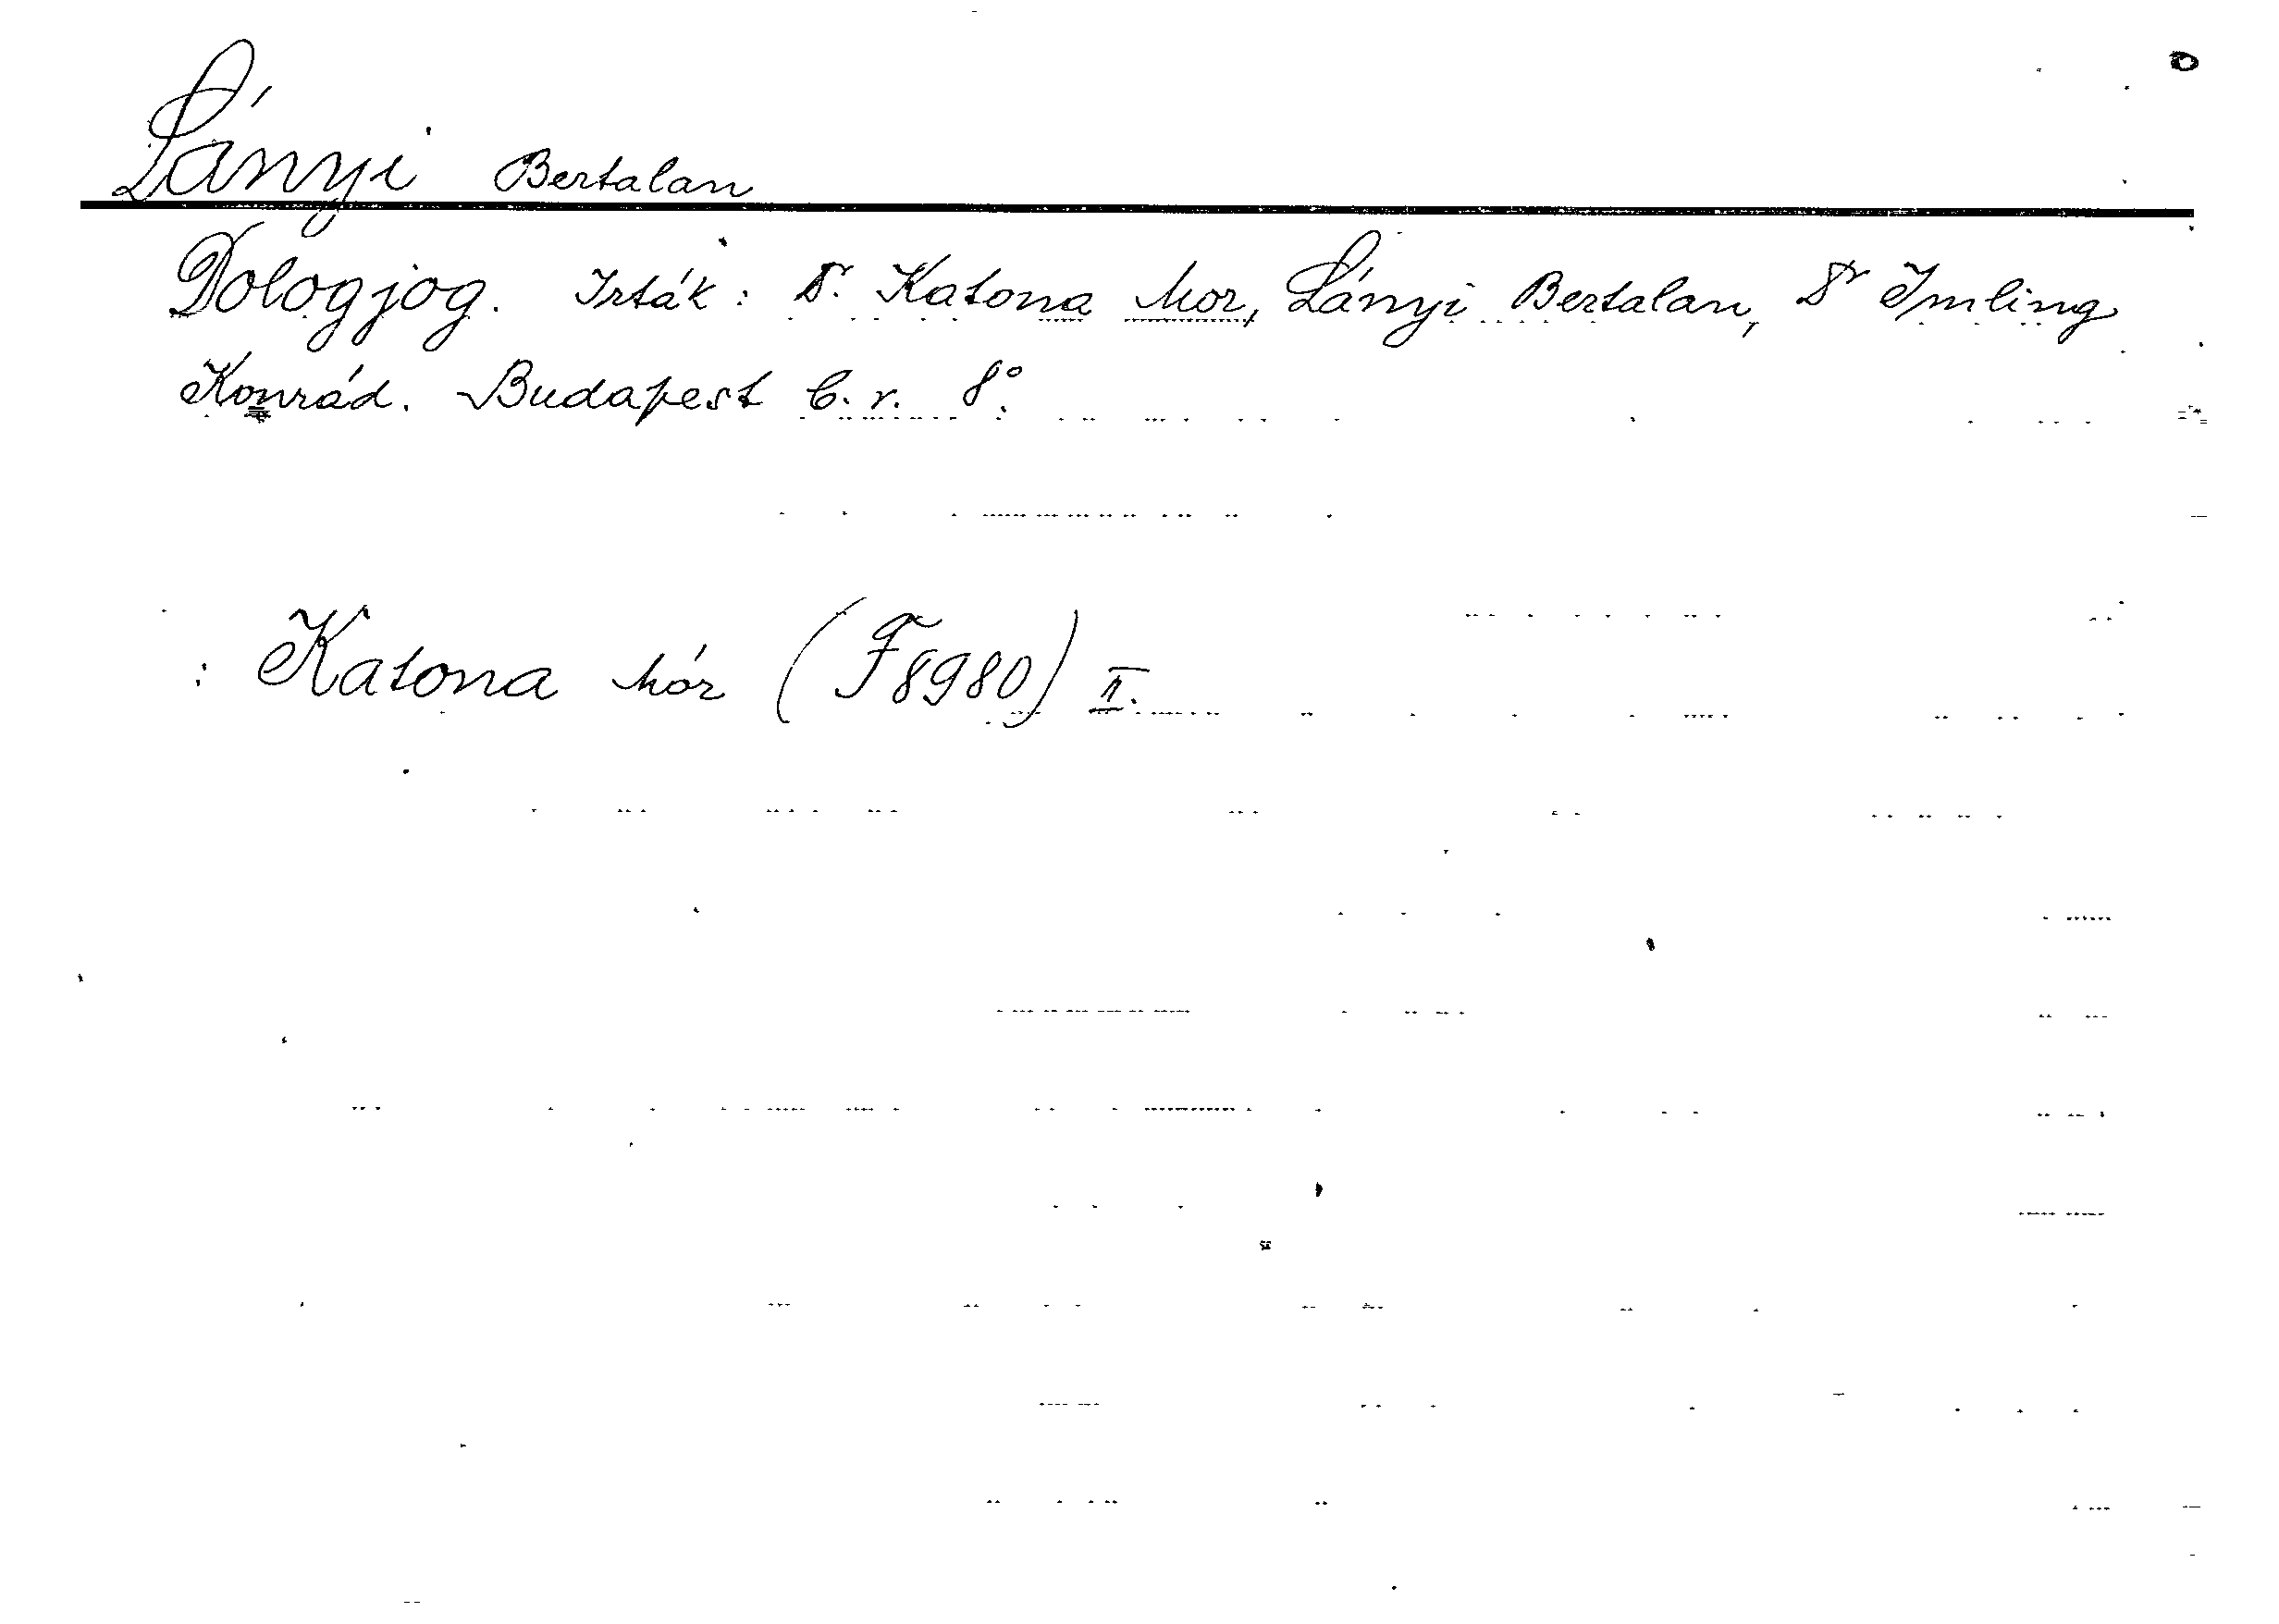 Lányi Bertalan
Dologjog. Irták: Dr. Katona Mór, Lányi Bertalan, Dr Imling
Konrád. Budapest É. n. 8°.
: Katona Mór (F8980) II.